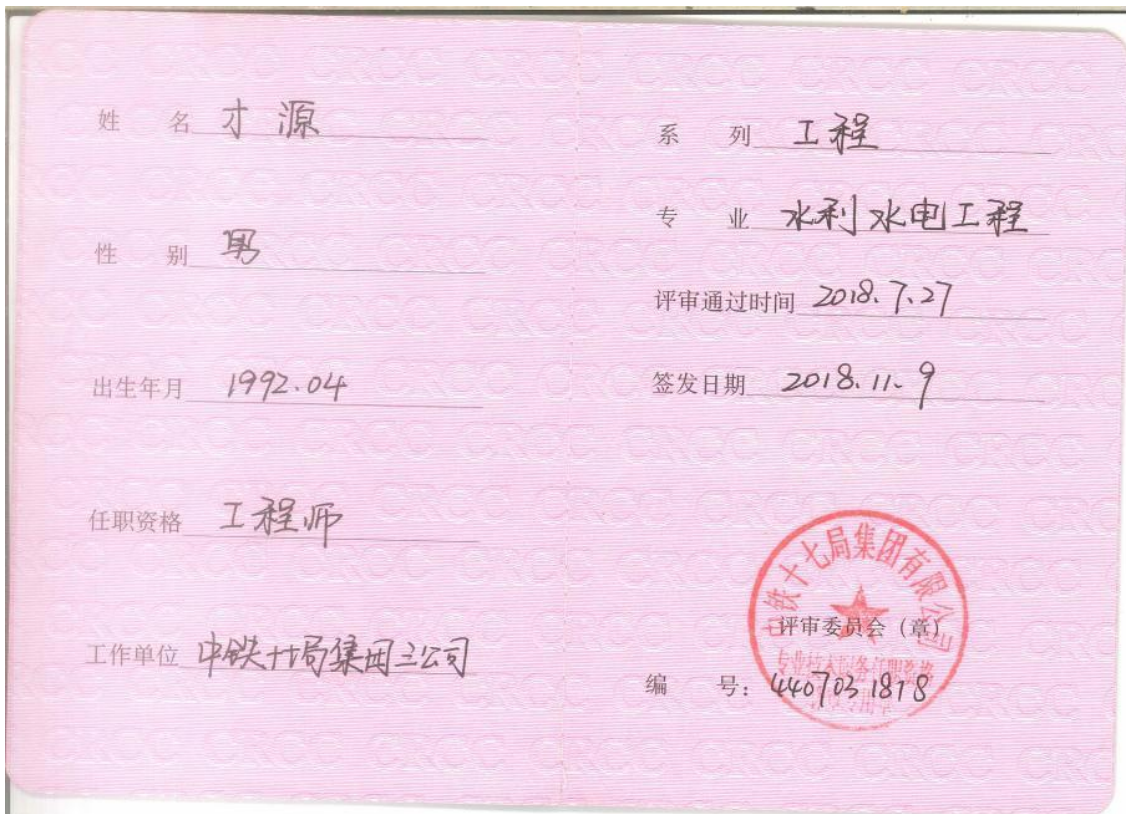 姓 名 才源
性 别 男
出生年月 1992.04
任职资格 工程师
工作单位 中铁十七局集团三公司
系 列 工程
专 业 水利水电工程
评审通过时间 2018.7.27
签发日期 2018.11.9
中铁十七局集团有限公司
评审委员会（章）
专业技术职务任职资格
编 号：4407031818
CRCC